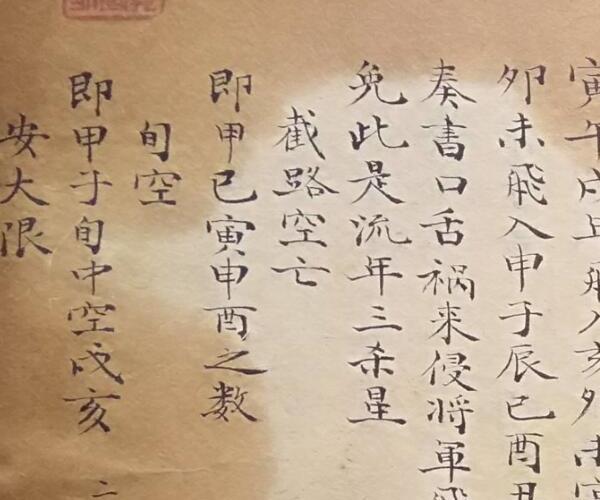 寅午戌丑飛入亥卯未寅
卯未飛入申子辰巳酉丑
奏書口舌禍来侵将軍飛
免此是流年三杀星
截路空亡
即甲己寅申酉之数
旬空
即甲子旬中空戌亥
安大限
二